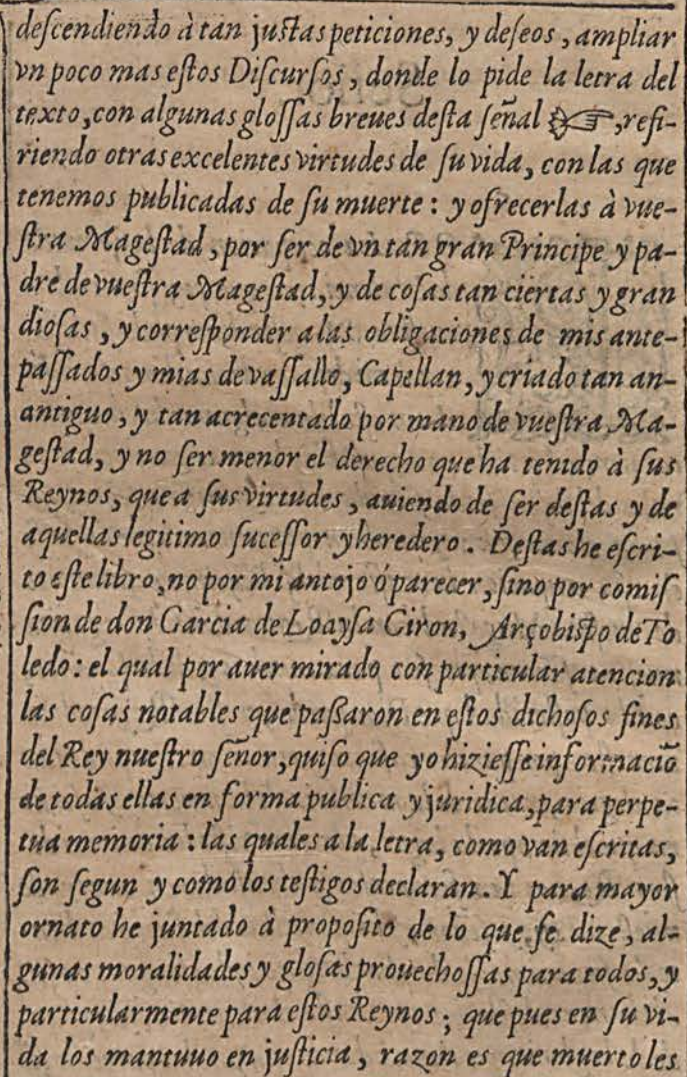 deſcendiendo à tan juſtas peticiones, y deſeos, ampliar
vn poco mas eſtos Diſcurſos, donde lo pide la letra del
texto, con algunas gloſſas breues deſta ſeñal ☞, refi-
riendo otras excelentes virtudes de ſu vida, con las que
tenemos publicadas de ſu muerte: y ofrecerlas à vue-
ſtra Mageſtad, por ſer de vn tan gran Principe y pa-
dre de vueſtra Mageſtad, y de coſas tan ciertas y gran
dioſas, y correſponder a las obligaciones de mis ante-
paſſados y mias de vaſſallo, Capellan, y criado tan an-
antiguo, y tan acrecentado por mano de vueſtra Ma-
geſtad, y no ſer menor el derecho que ha tenido à ſus
Reynos, que a ſus virtudes, auiendo de ſer deſtas y de
aquellas legitimo ſuceſſor y heredero. Deſtas he eſcri-
to eſte libro, no por mi antojo ó parecer, ſino por comiſ
ſion de don Garcia de Loayſa Giron, Arçobiſpo de To
ledo: el qual por auer mirado con particular atencion
las coſas notables que paßaron en eſtos dichoſos fines
del Rey nueſtro ſeñor, quiſo que yo hizieſſe informaciõ
de todas ellas en forma publica y juridica, para perpe-
tua memoria: las quales a la letra, como van eſcritas,
ſon ſegun y como los teſtigos declaran. Y para mayor
ornato he juntado à propoſito de lo que ſe dize, al-
gunas moralidades y gloſas prouechoſſas para todos, y
particularmente para eſtos Reynos; que pues en ſu vi-
da los mantuuo en juſticia, razon es que muerto les